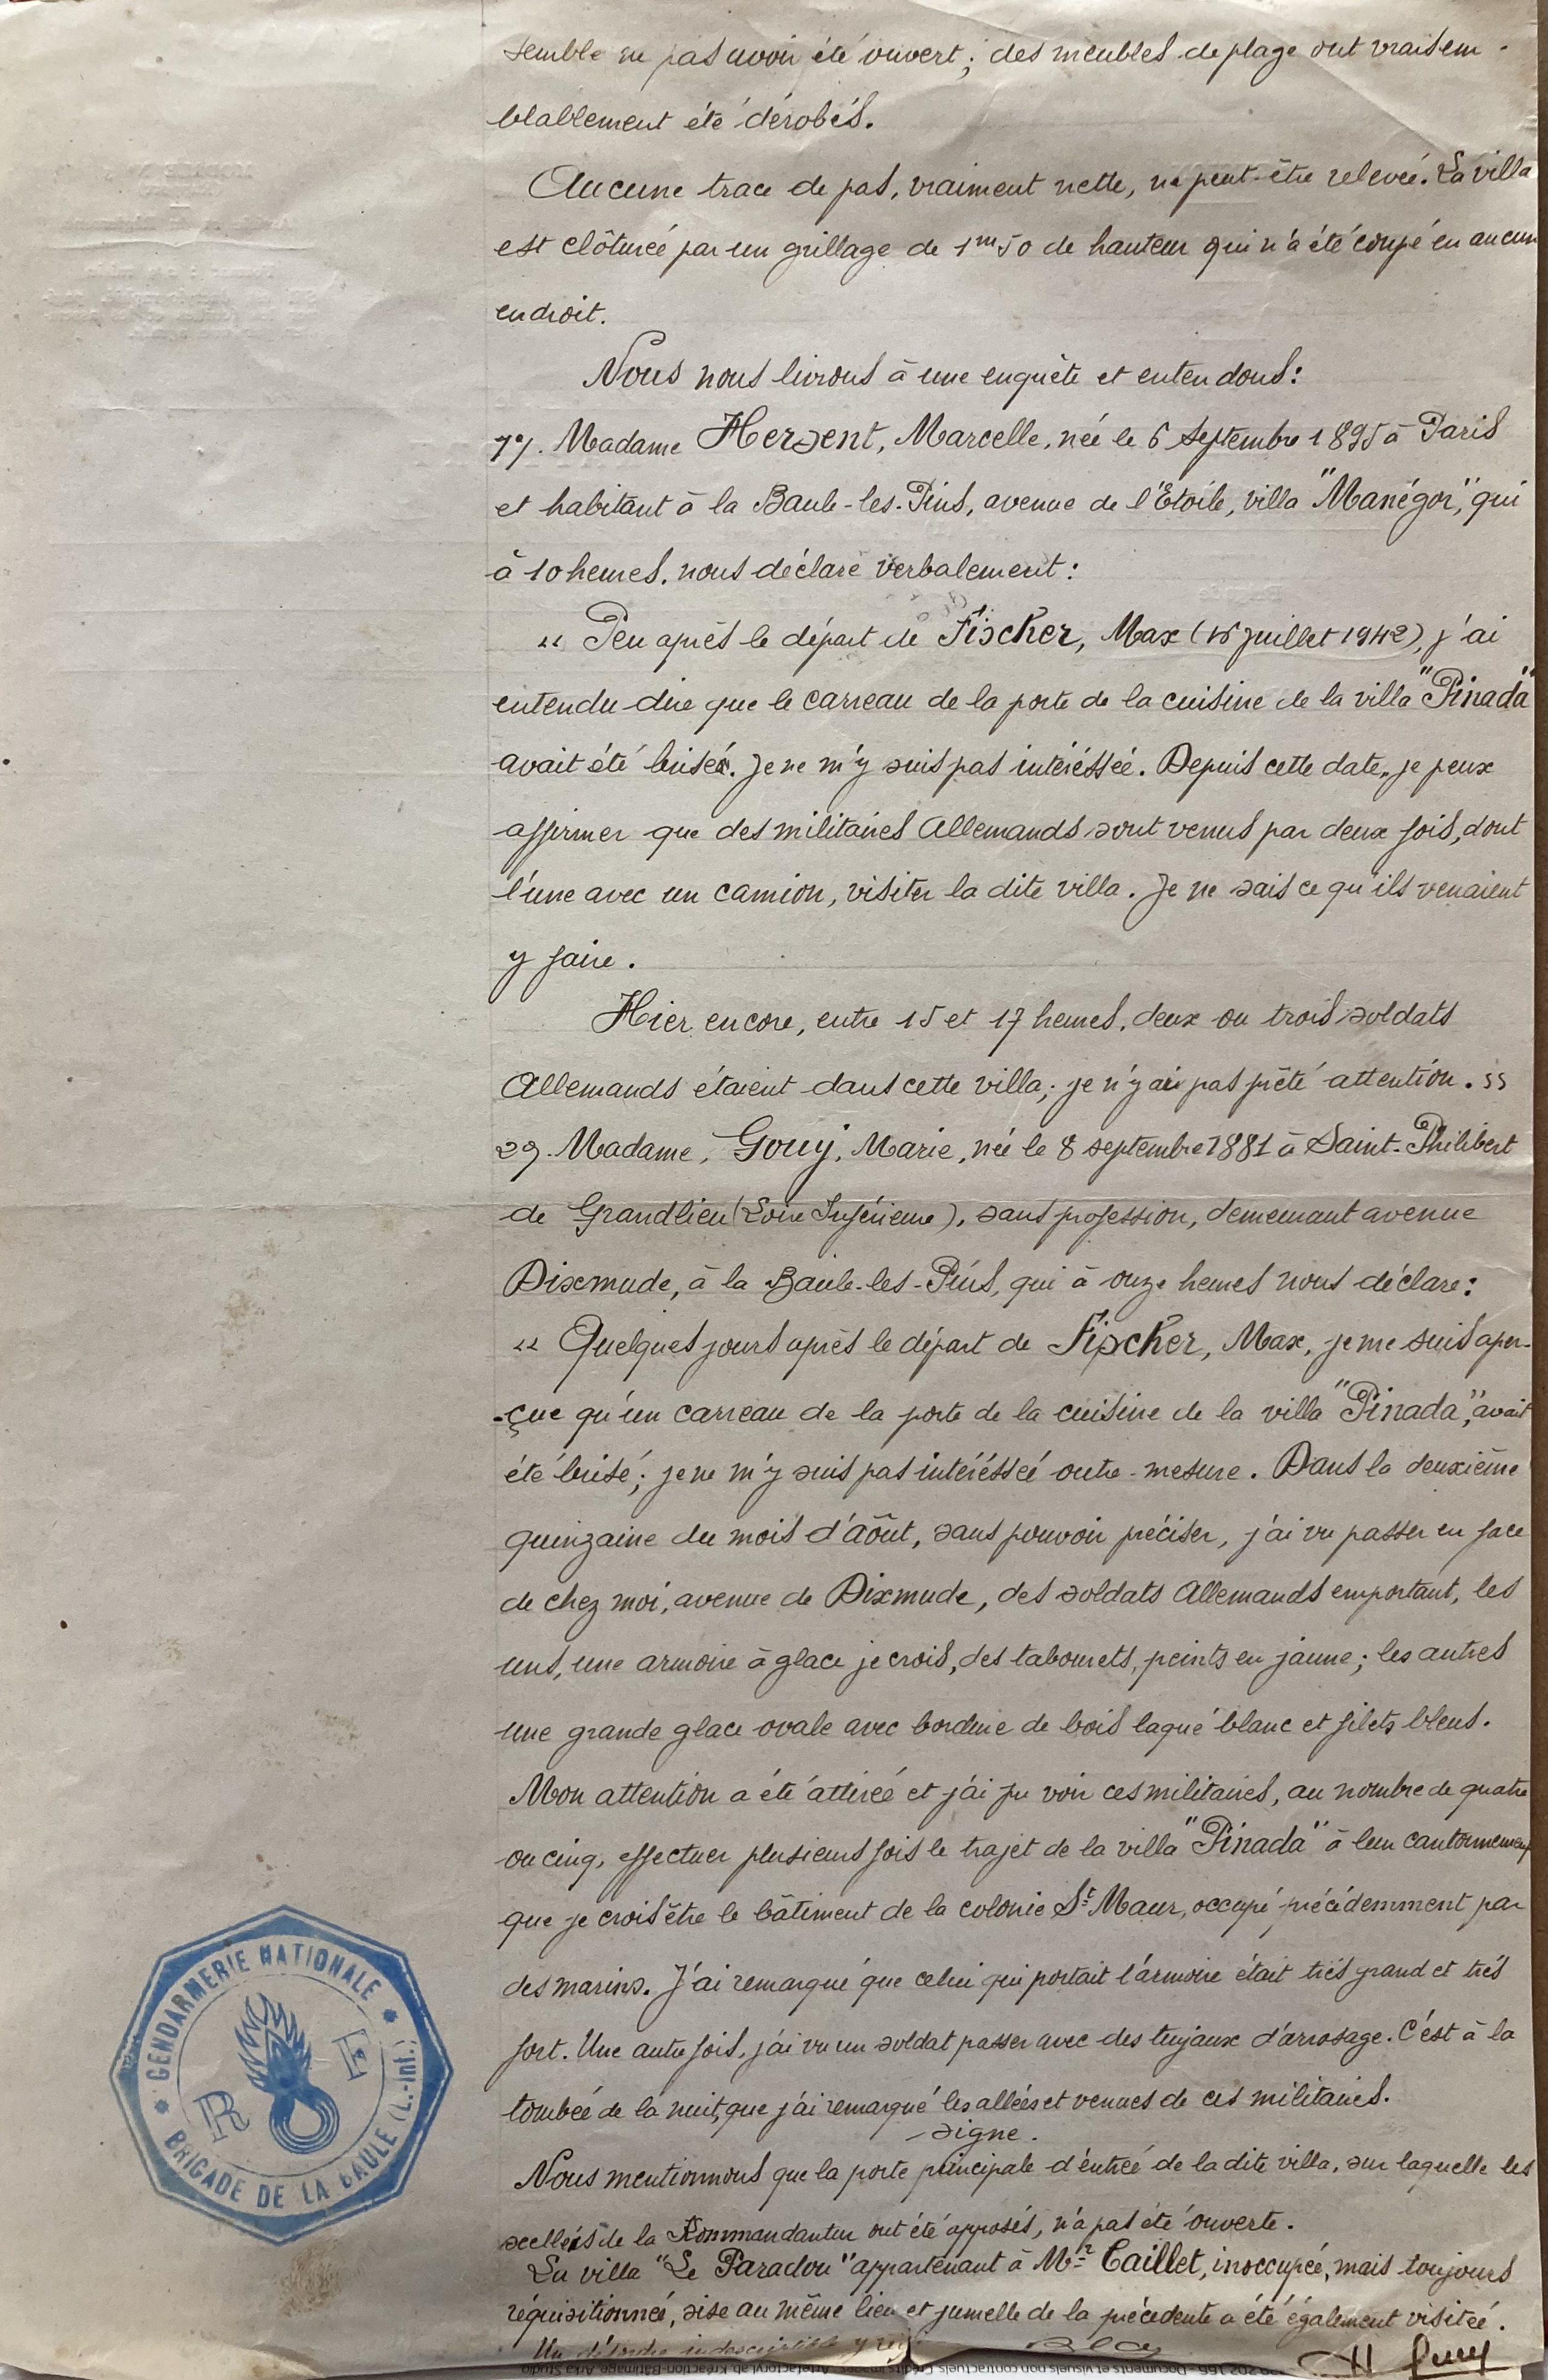 semble ne pas avoir été ouvert; des meubles de plage ont vraisem-
blablement été dérobés.
Aucune trace de pas, vraiment nette, ne peut être relevée. La villa
est clôturée par un grillage de 1m50 de hauteur qui n'a été coupé en aucun
endroit.
Nous nous livrons à une enquête et entendons:
1°/. Madame Hersent, Marcelle, née le 6 septembre 1895 à Paris
et habitant à la Baule-les-Pins, avenue de l'Etoile, villa "Manégor", qui
à 10 heures, nous déclare verbalement:
"Peu après le départ de Fischer, Max (16 juillet 1942), j'ai
entendu dire que le carreau de la porte de la cuisine de la villa "Pinada"
avait été brisé. Je ne m'y suis pas intéréssée. Depuis cette date, je peux
affirmer que des militaires Allemands sont venus par deux fois, dont
l'une avec un camion, visiter la dite villa. Je ne sais ce qu'ils venaient
y faire.
Hier encore, entre 15 et 17 heures, deux ou trois soldats
Allemands étaient dans cette villa; je n'y ai pas prêté attention."
2°/. Madame, Gouy, Marie, née le 8 septembre 1881 à Saint-Philibert
de Grandlieu (Loire Inférieure), sans profession, demeurant avenue
Dixmude, à la Baule-les-Pins, qui à onze heures nous déclare:
"Quelques jours après le départ de Fischer, Max, je me suis aper-
-çue qu'un carreau de la porte de la cuisine de la villa "Pinada", avait
été brisé; je ne m'y suis pas intéréssée outre-mesure. Dans la deuxième
quinzaine du mois d'août, sans pouvoir préciser, j'ai vu passer en face
de chez moi, avenue de Dixmude, des soldats Allemands emportant, les
uns, une armoire à glace je crois, des tabourets, peints en jaune; les autres
une grande glace ovale avec bordure de bois laqué blanc et filets bleus.
Mon attention a été attirée et j'ai pu voir ces militaires, au nombre de quatre
ou cinq, effectuer plusieurs fois le trajet de la villa "Pinada" à leur cantonnement
que je crois être le bâtiment de la colonie St Maur, occupé précédemment par
des marins. J'ai remarqué que celui qui portait l'armoire était très grand et très
fort. Une autre fois, j'ai vu un soldat passer avec des tuyaux d'arrosage. C'est à la
tombée de la nuit, que j'ai remarqué les allées et venues de ces militaires.
signe.
Nous mentionnons que la porte principale d'entrée de la dite villa, sur laquelle les
scellés de la Kommandantur ont été apposés, n'a pas été ouverte.
La villa "Le Paradou" appartenant à Mr Caillet, inoccupée, mais toujours
réquisitionnée, sise au même lieu et jumelle de la précédente a été également visitée.
Un désordre indescriptible y
GENDARMERIE NATIONALE
R F
BRIGADE DE LA BAULE (L.-Inf.)